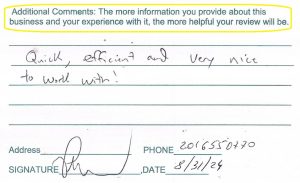 Additional Comments: The more information you provide about this
business and your experience with it, the more helpful your review will be.
Quick, efficient and very nice
to work with!
Address
PHONE 2016550770
SIGNATURE ,DATE 8/31/24